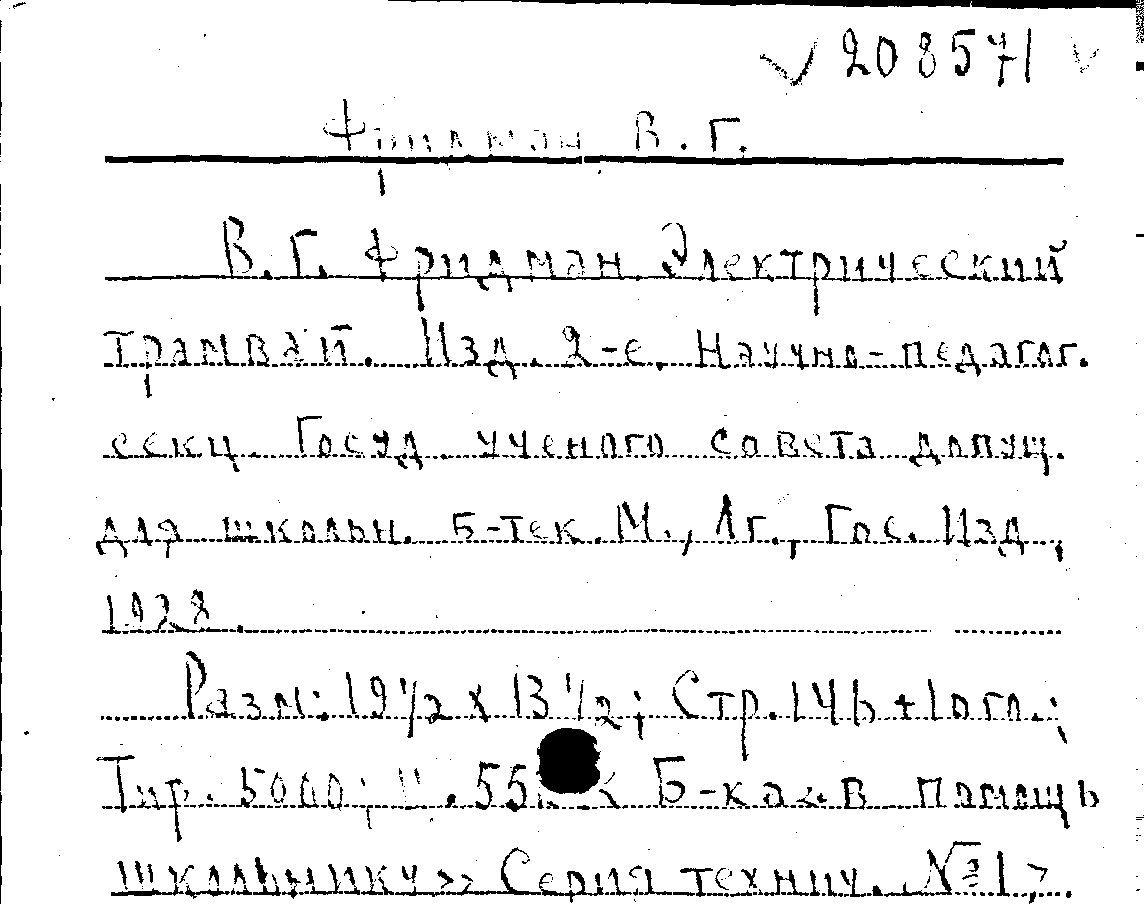 208571
Фридман В. Г.
В. Г. Фридман. Электрический
трамвай. Изд. 2-е. Научно-педагог.
секц. Госуд. ученого совета допущ.
для школьн. б-тек. М., Лг., Гос. Изд.,
1928.
Разм: 19 1/2 х 13 1/2; Стр. 146 + 1 огл.;
Тир. 5000; Ц. 55 к Б-ка «В помощь
школьнику» Серия технич. №